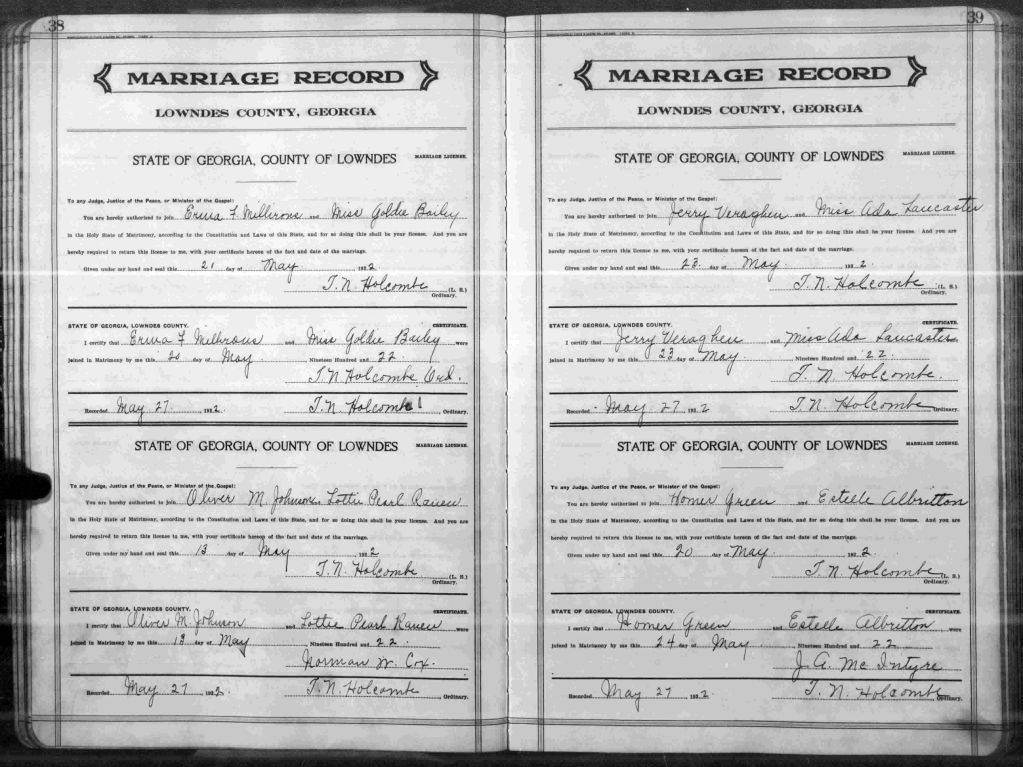 38
MARRIAGE RECORD
LOWNDES COUNTY, GEORGIA
STATE OF GEORGIA, COUNTY OF LOWNDES MARRIAGE LICENSE.
To any Judge, Justice of the Peace, or Minister of the Gospel:
You are hereby authorized to join F. Millirons and Miss Goldie Bailey
in the Holy State of Matrimony, according to the Constitution and Laws of this State, and for so doing this shall be your license. And you are
hereby required to return this license to me, with your certificate hereon of the fact and date of the marriage.
Given under my hand and seal this 21 day of May 1922
T. N. Holcombe (L. S.)
Ordinary.
STATE OF GEORGIA, LOWNDES COUNTY. CERTIFICATE.
I certify that F Millirons and Miss Goldie Bailey were
joined in Matrimony by me this 20 day of May Nineteen Hundred and 22
T. N Holcombe Ord.
Recorded May 27 1922. T. N Holcombe Ordinary.
STATE OF GEORGIA, COUNTY OF LOWNDES MARRIAGE LICENSE.
To any Judge, Justice of the Peace, or Minister of the Gospel:
You are hereby authorized to join Oliver M. Johnson Lottie Pearl
in the Holy State of Matrimony, according to the Constitution and Laws of this State, and for so doing this shall be your license. And you are
hereby required to return this license to me, with your certificate hereon of the fact and date of the marriage.
Given under my hand and seal this 13 day of May 1922
T. N. Holcombe (L. S.)
Ordinary.
STATE OF GEORGIA, LOWNDES COUNTY. CERTIFICATE.
I certify that Oliver M. Johnson and Lottie Pearl were
joined in Matrimony by me this day of May Nineteen Hundred and 22
Norman W. Cox.
Recorded May 27 1922. T. N. Holcombe Ordinary.
39
MARRIAGE RECORD
LOWNDES COUNTY, GEORGIA
STATE OF GEORGIA, COUNTY OF LOWNDES MARRIAGE LICENSE.
To any Judge, Justice of the Peace, or Minister of the Gospel:
You are hereby authorized to join Jerry Veraghen and Miss Ada Lancaster
in the Holy State of Matrimony, according to the Constitution and Laws of this State, and for so doing this shall be your license. And you are
hereby required to return this license to me, with your certificate hereon of the fact and date of the marriage.
Given under my hand and seal this 23 day of May 1922.
T. N. Holcombe (L. S.)
Ordinary.
STATE OF GEORGIA, LOWNDES COUNTY. CERTIFICATE.
I certify that Jerry Veraghen and Miss Ada Lancaster were
joined in Matrimony by me this 23 day of May Nineteen Hundred and 22
T. N. Holcombe.
Recorded May 27 1922 T. N. Holcombe Ordinary.
STATE OF GEORGIA, COUNTY OF LOWNDES MARRIAGE LICENSE.
To any Judge, Justice of the Peace, or Minister of the Gospel:
You are hereby authorized to join Homer Green and Estelle Albritton
in the Holy State of Matrimony, according to the Constitution and Laws of this State, and for so doing this shall be your license. And you are
hereby required to return this license to me, with your certificate hereon of the fact and date of the marriage.
Given under my hand and seal this 20 day of May 1922.
T. N. Holcombe (L. S.)
Ordinary.
STATE OF GEORGIA, LOWNDES COUNTY. CERTIFICATE.
I certify that Homer Green and Estelle Albritton were
joined in Matrimony by me this 24 day of May Nineteen Hundred and 22
J. A. Mc Intyre
Recorded May 27 1922. T. N. Holcombe Ordinary.